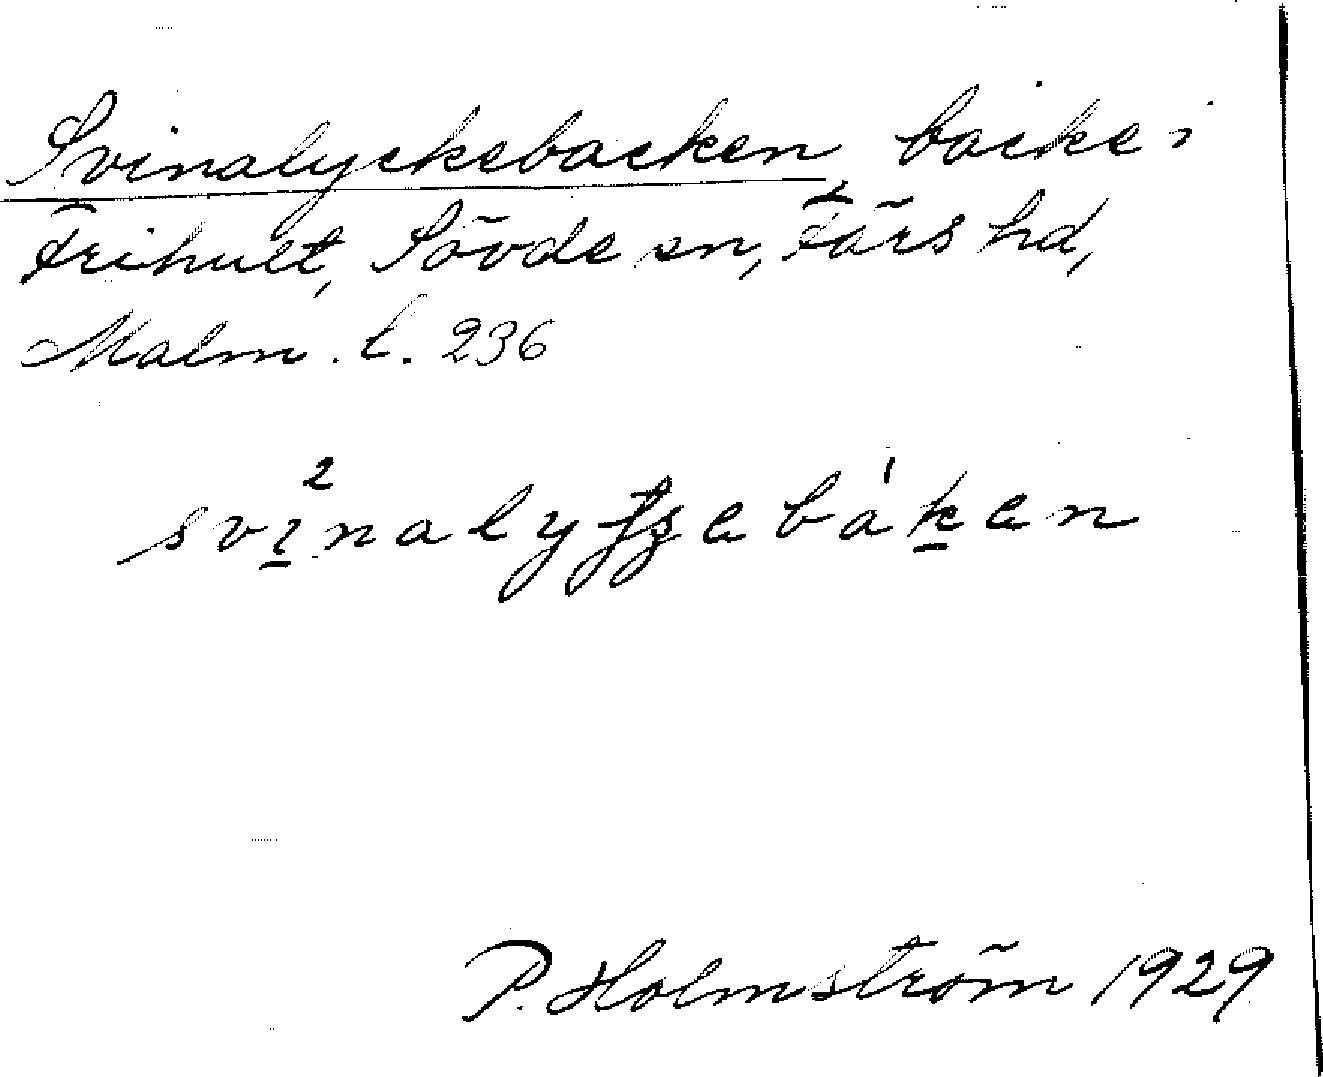 Svinalyckebacken backe i
Frihult, Sövde sn, Färs hd,
Malm. l. 236
P. Holmström 1929